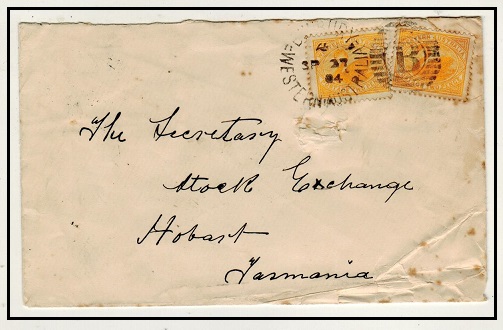 SP 27
04
WESTERN AUSTRALIA
B
The Secretary
Stock Exchange
Hobart
Tasmania